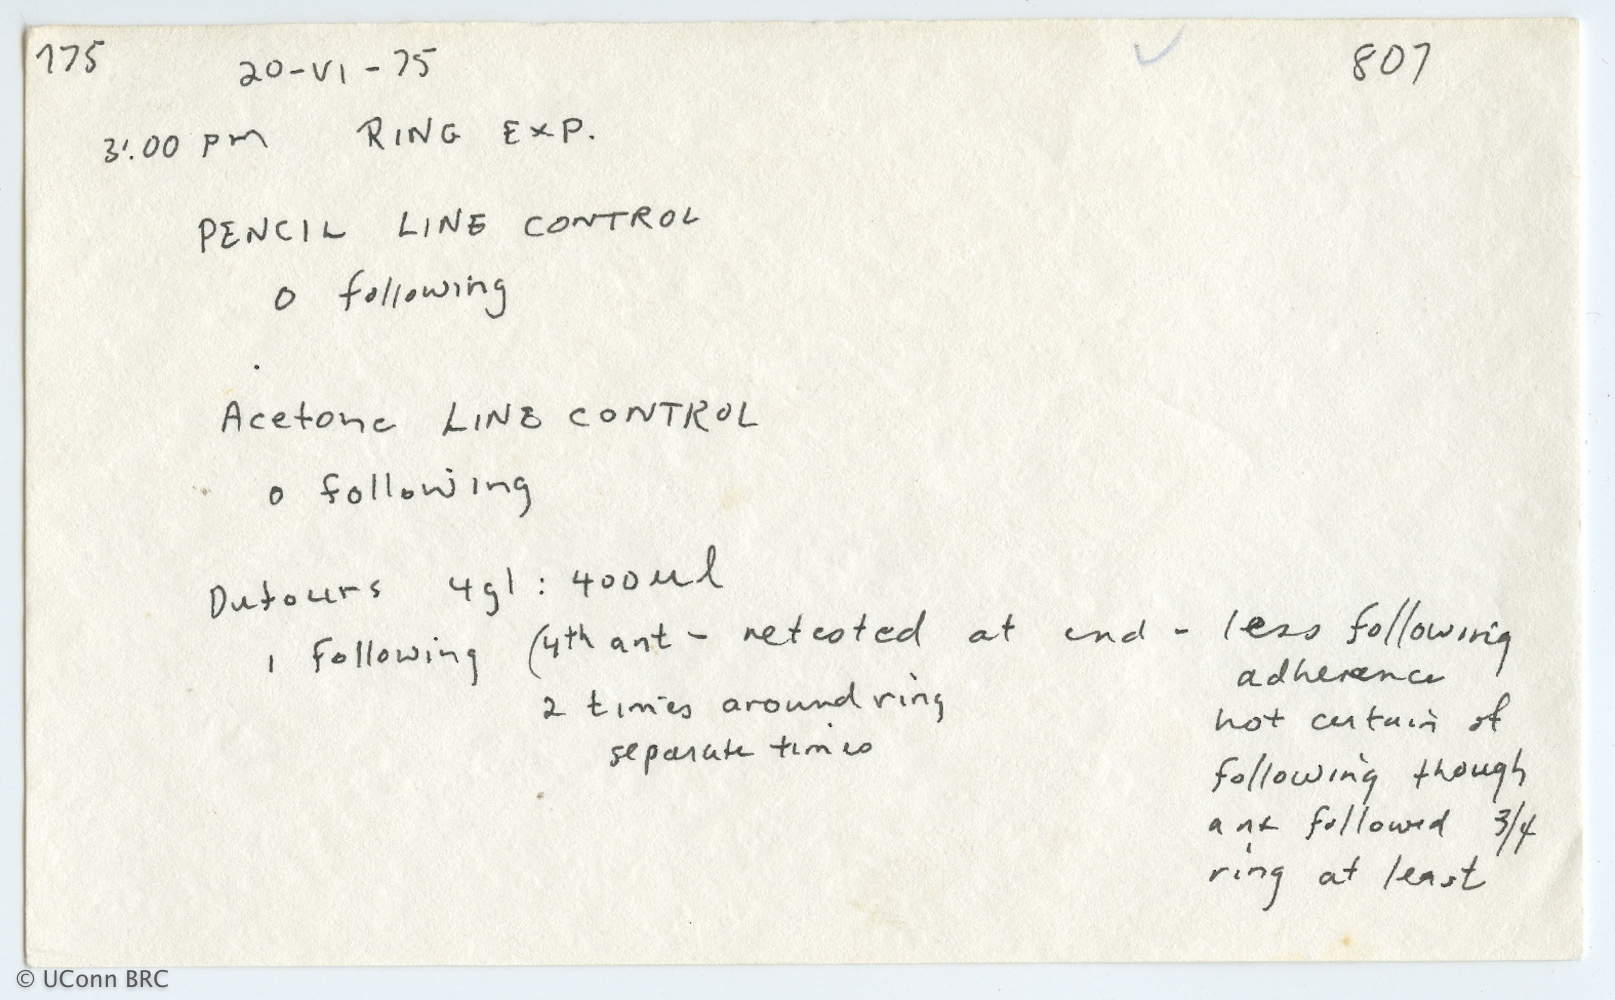 175 20-VI-75 807
3:00 pm RING EXP.
PENCIL LINE CONTROL
0 following
Acetone LINE CONTROL
0 following
Dufours 4gl : 400ul
1 following (4th ant - retested at end - less following
adherence
2 times around ring
separate times
not certain of
following though
ant followed 3/4
ring at least
© UConn BRC